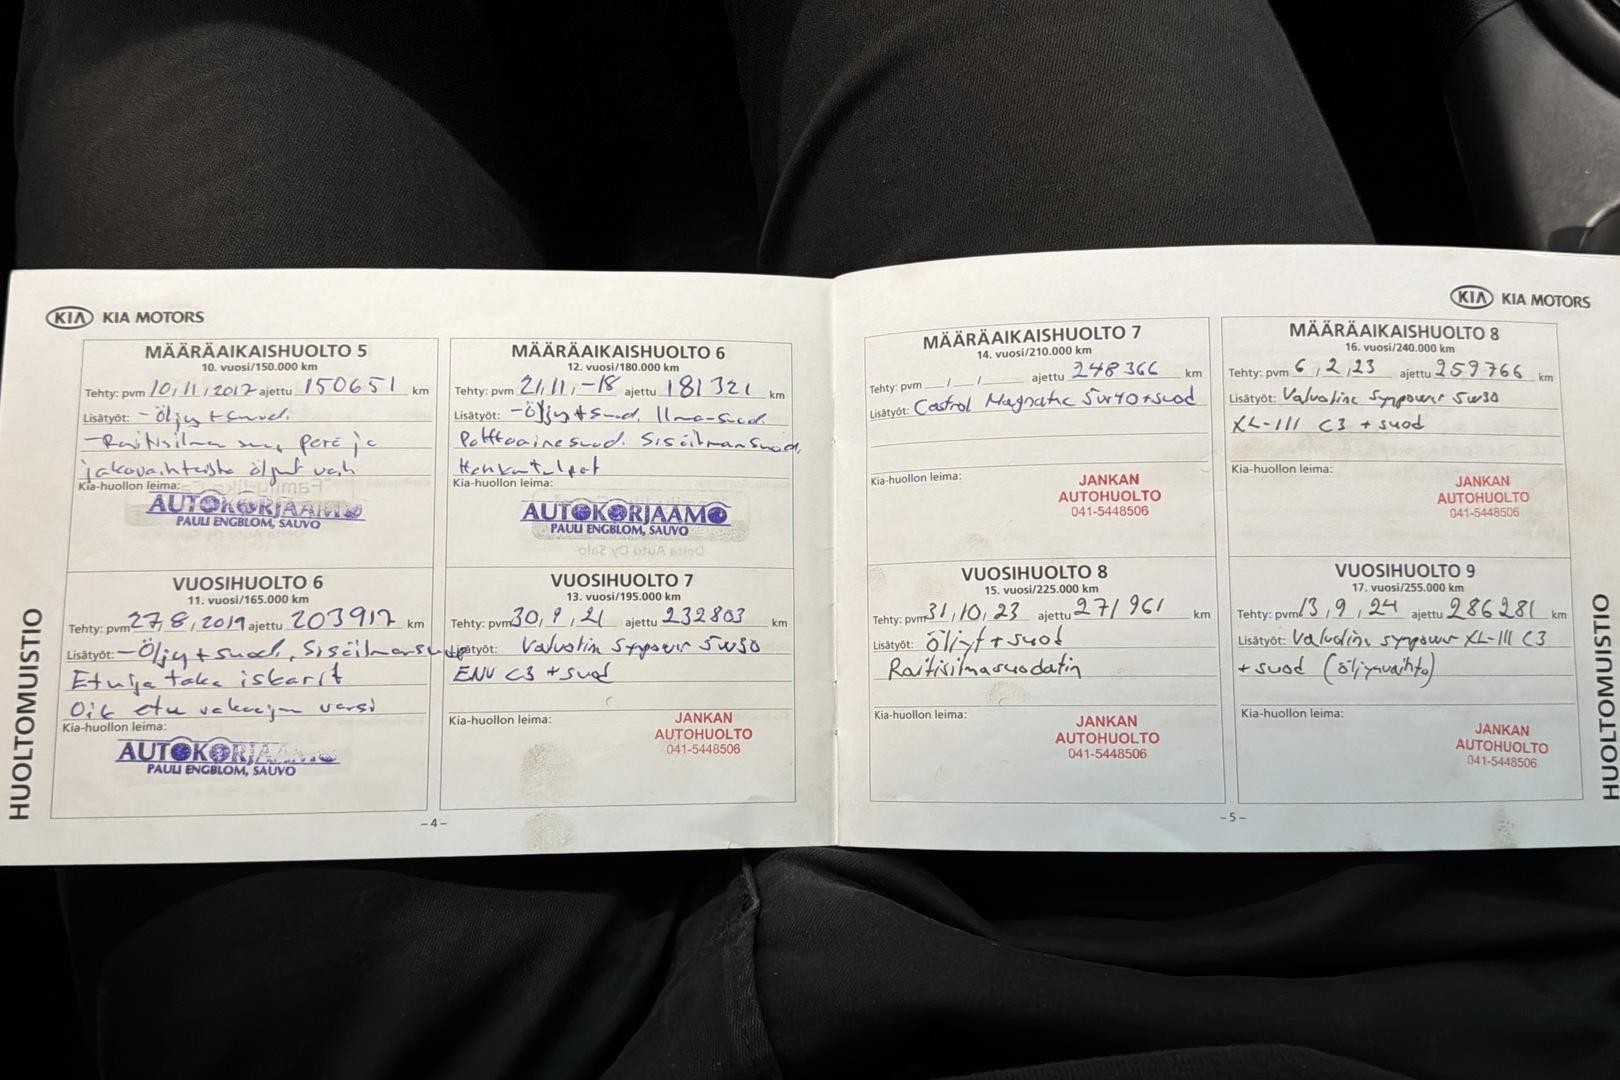 KIA KIA MOTORS
MÄÄRÄAIKAISHUOLTO 5
10. vuosi/150.000 km
Tehty: pvm 10,11,2017 ajettu 150651 km
Lisätyöt: -Öljy + suod.
-Raitisilma suo, perä ja
jakovaihteisto öljyt vaih
Kia-huollon leima:
AUTOKORJAAMO
PAULI ENGBLOM, SAUVO
MÄÄRÄAIKAISHUOLTO 6
12. vuosi/180.000 km
Tehty: pvm 21,11,-18 ajettu 181321 km
Lisätyöt: -Öljy + suod. Ilma-suod.
Polttoainesuod. Sisäilmansuod,
Kia-huollon leima:
AUTOKORJAAMO
PAULI ENGBLOM, SAUVO
Delta Auto Oy Salo
VUOSIHUOLTO 6
11. vuosi/165.000 km
Tehty: pvm 27,8,2019 ajettu 203917 km
Lisätyöt: -Öljy + suod, Sisäilmansuod
Etu ja taka iskarit
Oik etu vakaajan varsi
Kia-huollon leima:
AUTOKORJAAMO
PAULI ENGBLOM, SAUVO
VUOSIHUOLTO 7
13. vuosi/195.000 km
Tehty: pvm 30,9,21 ajettu 232803 km
Lisätyöt: Valvoline Synpower 5w30
ENV C3 + suod
Kia-huollon leima:
JANKAN
AUTOHUOLTO
041-5448506
HUOLTOMUISTIO
-4-
KIA KIA MOTORS
MÄÄRÄAIKAISHUOLTO 7
14. vuosi/210.000 km
Tehty: pvm __/__/____ ajettu 248366 km
Lisätyöt: Castrol Magnatec 5w40+suod
Kia-huollon leima:
JANKAN
AUTOHUOLTO
041-5448506
MÄÄRÄAIKAISHUOLTO 8
16. vuosi/240.000 km
Tehty: pvm 6,2,23 ajettu 259766 km
Lisätyöt: Valvoline Synpower 5w30
XL-III C3 + suod
Kia-huollon leima:
JANKAN
AUTOHUOLTO
041-5448506
VUOSIHUOLTO 8
15. vuosi/225.000 km
Tehty: pvm 31,10,23 ajettu 271961 km
Lisätyöt: öljyt + suod
Raitisilmasuodatin
Kia-huollon leima:
JANKAN
AUTOHUOLTO
041-5448506
VUOSIHUOLTO 9
17. vuosi/255.000 km
Tehty: pvm 13,9,24 ajettu 286281 km
Lisätyöt: Valvoline synpower XL-III C3
+ suod (öljynvaihto)
Kia-huollon leima:
JANKAN
AUTOHUOLTO
041-5448506
HUOLTOMUISTIO
-5-